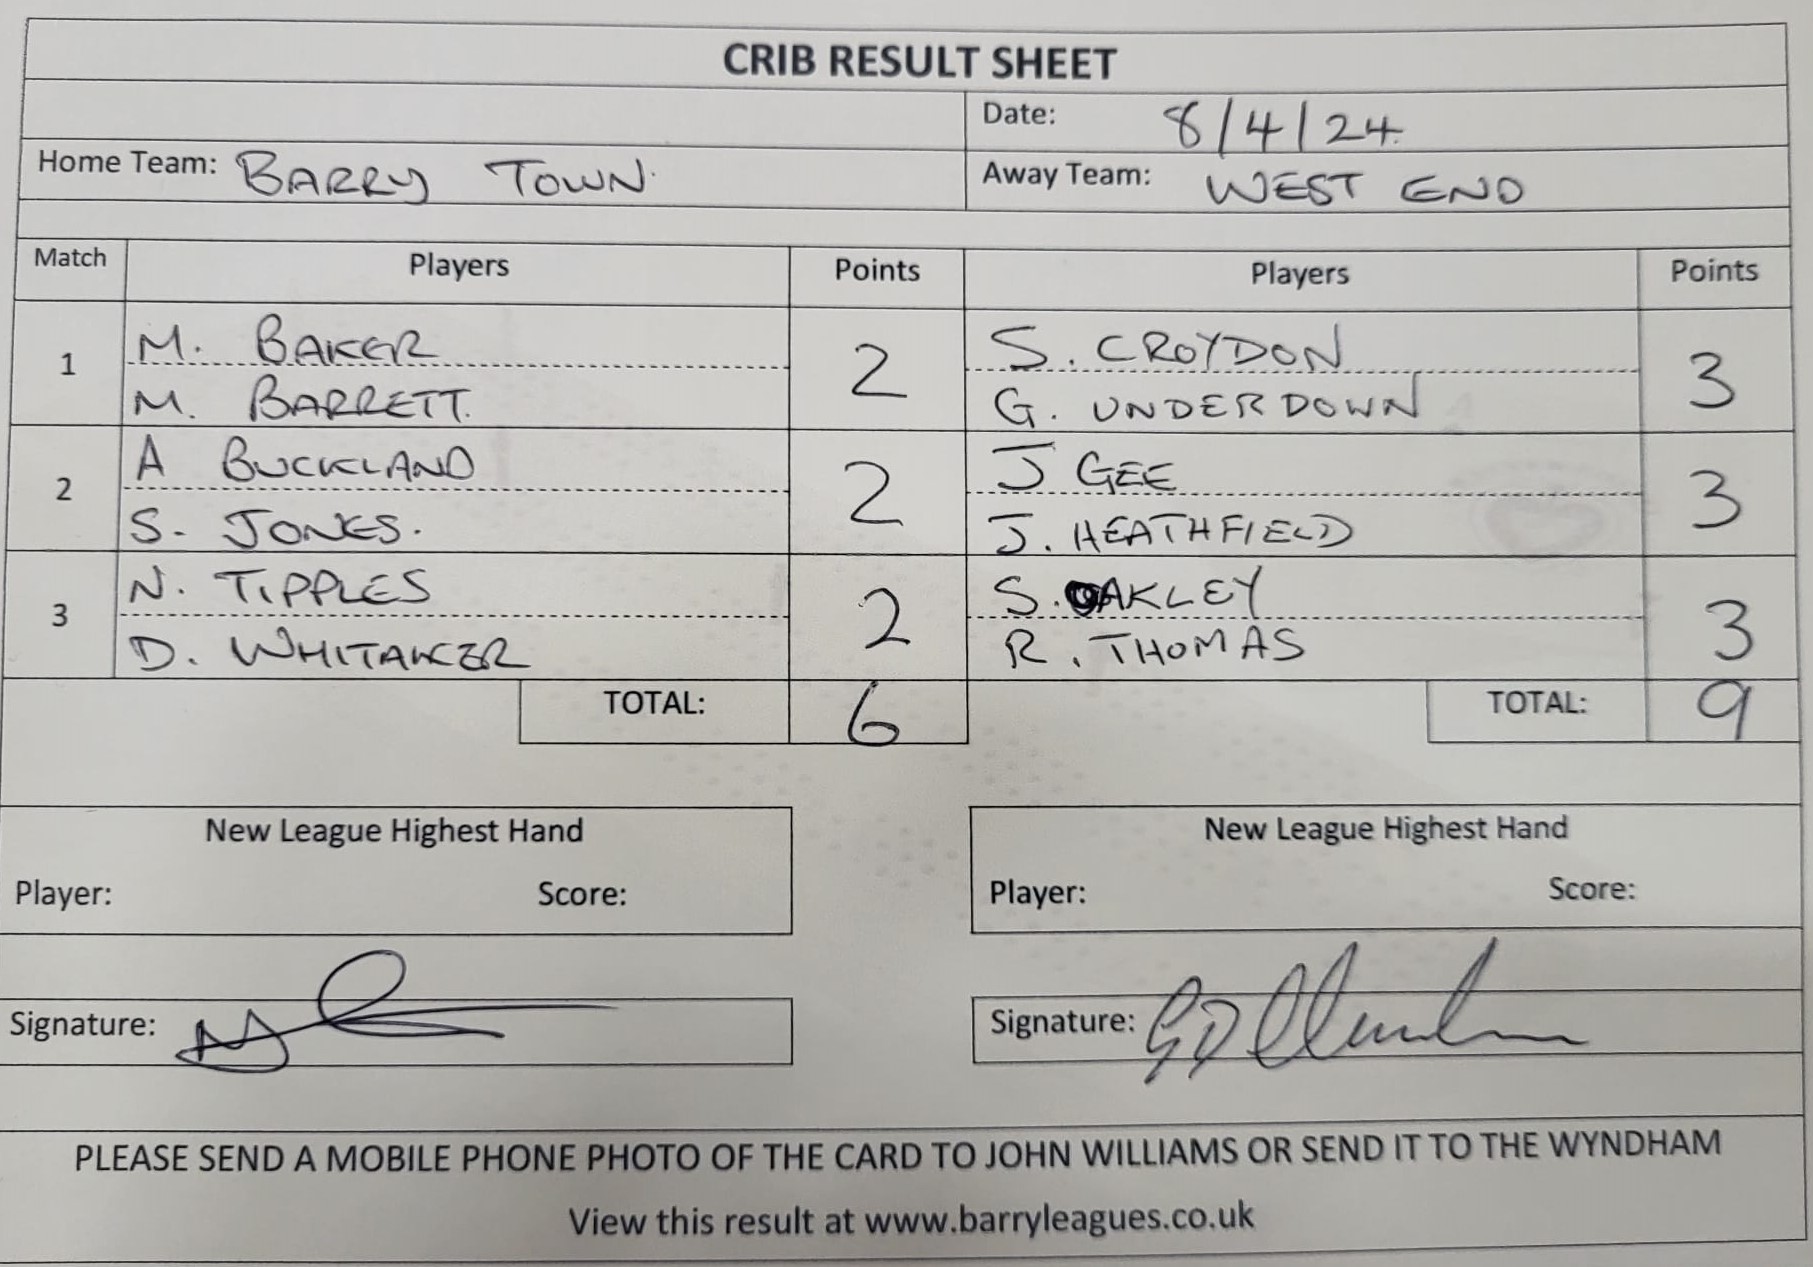 CRIB RESULT SHEET
Date: 8/4/24
Home Team: BARRY TOWN
Away Team: WEST END
Match Players Points Players Points
1
M. BAKER
M. BARRETT.
2
S. CROYDON
G. UNDERDOWN
3
2
A BUCKLAND
S. JONES.
2
J GEE
J. HEATHFIELD
3
3
N. TIPPLES
D. WHITAKER
2
S. OAKLEY
R. THOMAS
3
TOTAL: 6 TOTAL: 9
New League Highest Hand
Player: Score:
New League Highest Hand
Player: Score:
Signature:
Signature:
PLEASE SEND A MOBILE PHONE PHOTO OF THE CARD TO JOHN WILLIAMS OR SEND IT TO THE WYNDHAM
View this result at www.barryleagues.co.uk